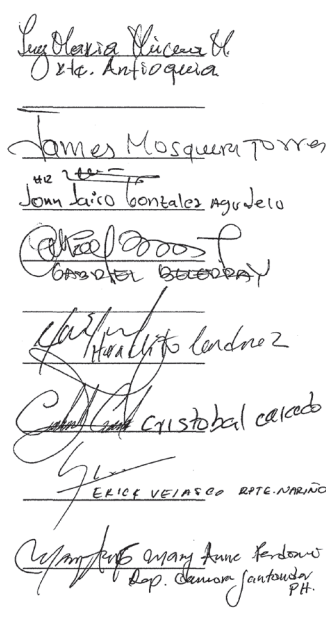 Luz Maria Múnera M.
Rte. Antioquia
James Mosquera Torres
#12
John Jairo Gonzalez Agudelo
Gabriel Becerra Y
Heraclito Landinez
Cristobal Caicedo
Erick Velasco Rpte. Nariño
Mary Anne Perdomo
Rep. Camara Santander
PH.